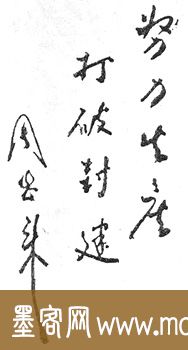 努力生产
打破封建
周恩来
墨客网 www.mo